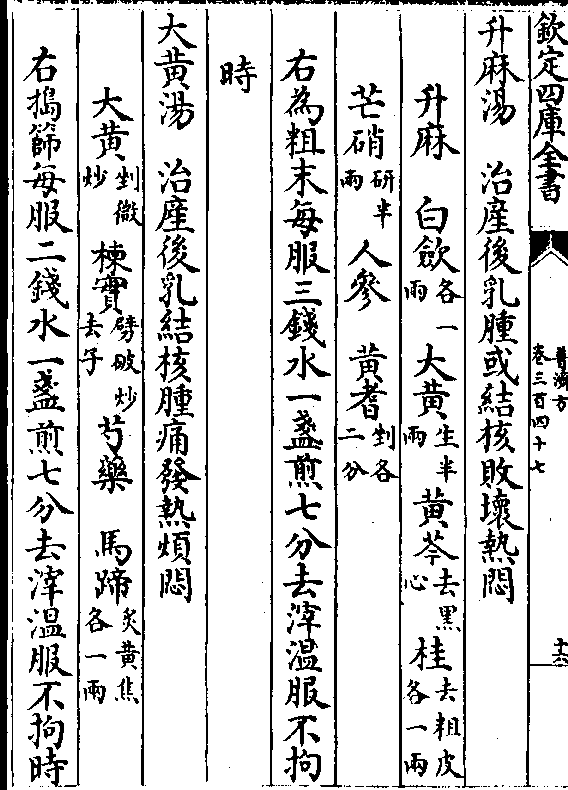 欽定四庫全書
普濟方
卷三百四十七
十六
升麻湯　治產後乳腫或結核敗壞熱悶
升麻　白歛各一兩　大黄生半兩　黄芩去黑心　桂去粗皮各一兩
芒硝研半兩　人參　黄耆剉各二分
右為粗末每服三錢水一盞煎七分去滓温服不拘
時
大黄湯　治產後乳結核腫痛發熱煩悶
大黄剉微炒　楝實劈破炒去子　芍藥　馬蹄炙黄焦各一兩
右搗篩每服二錢水一盞煎七分去滓温服不拘時